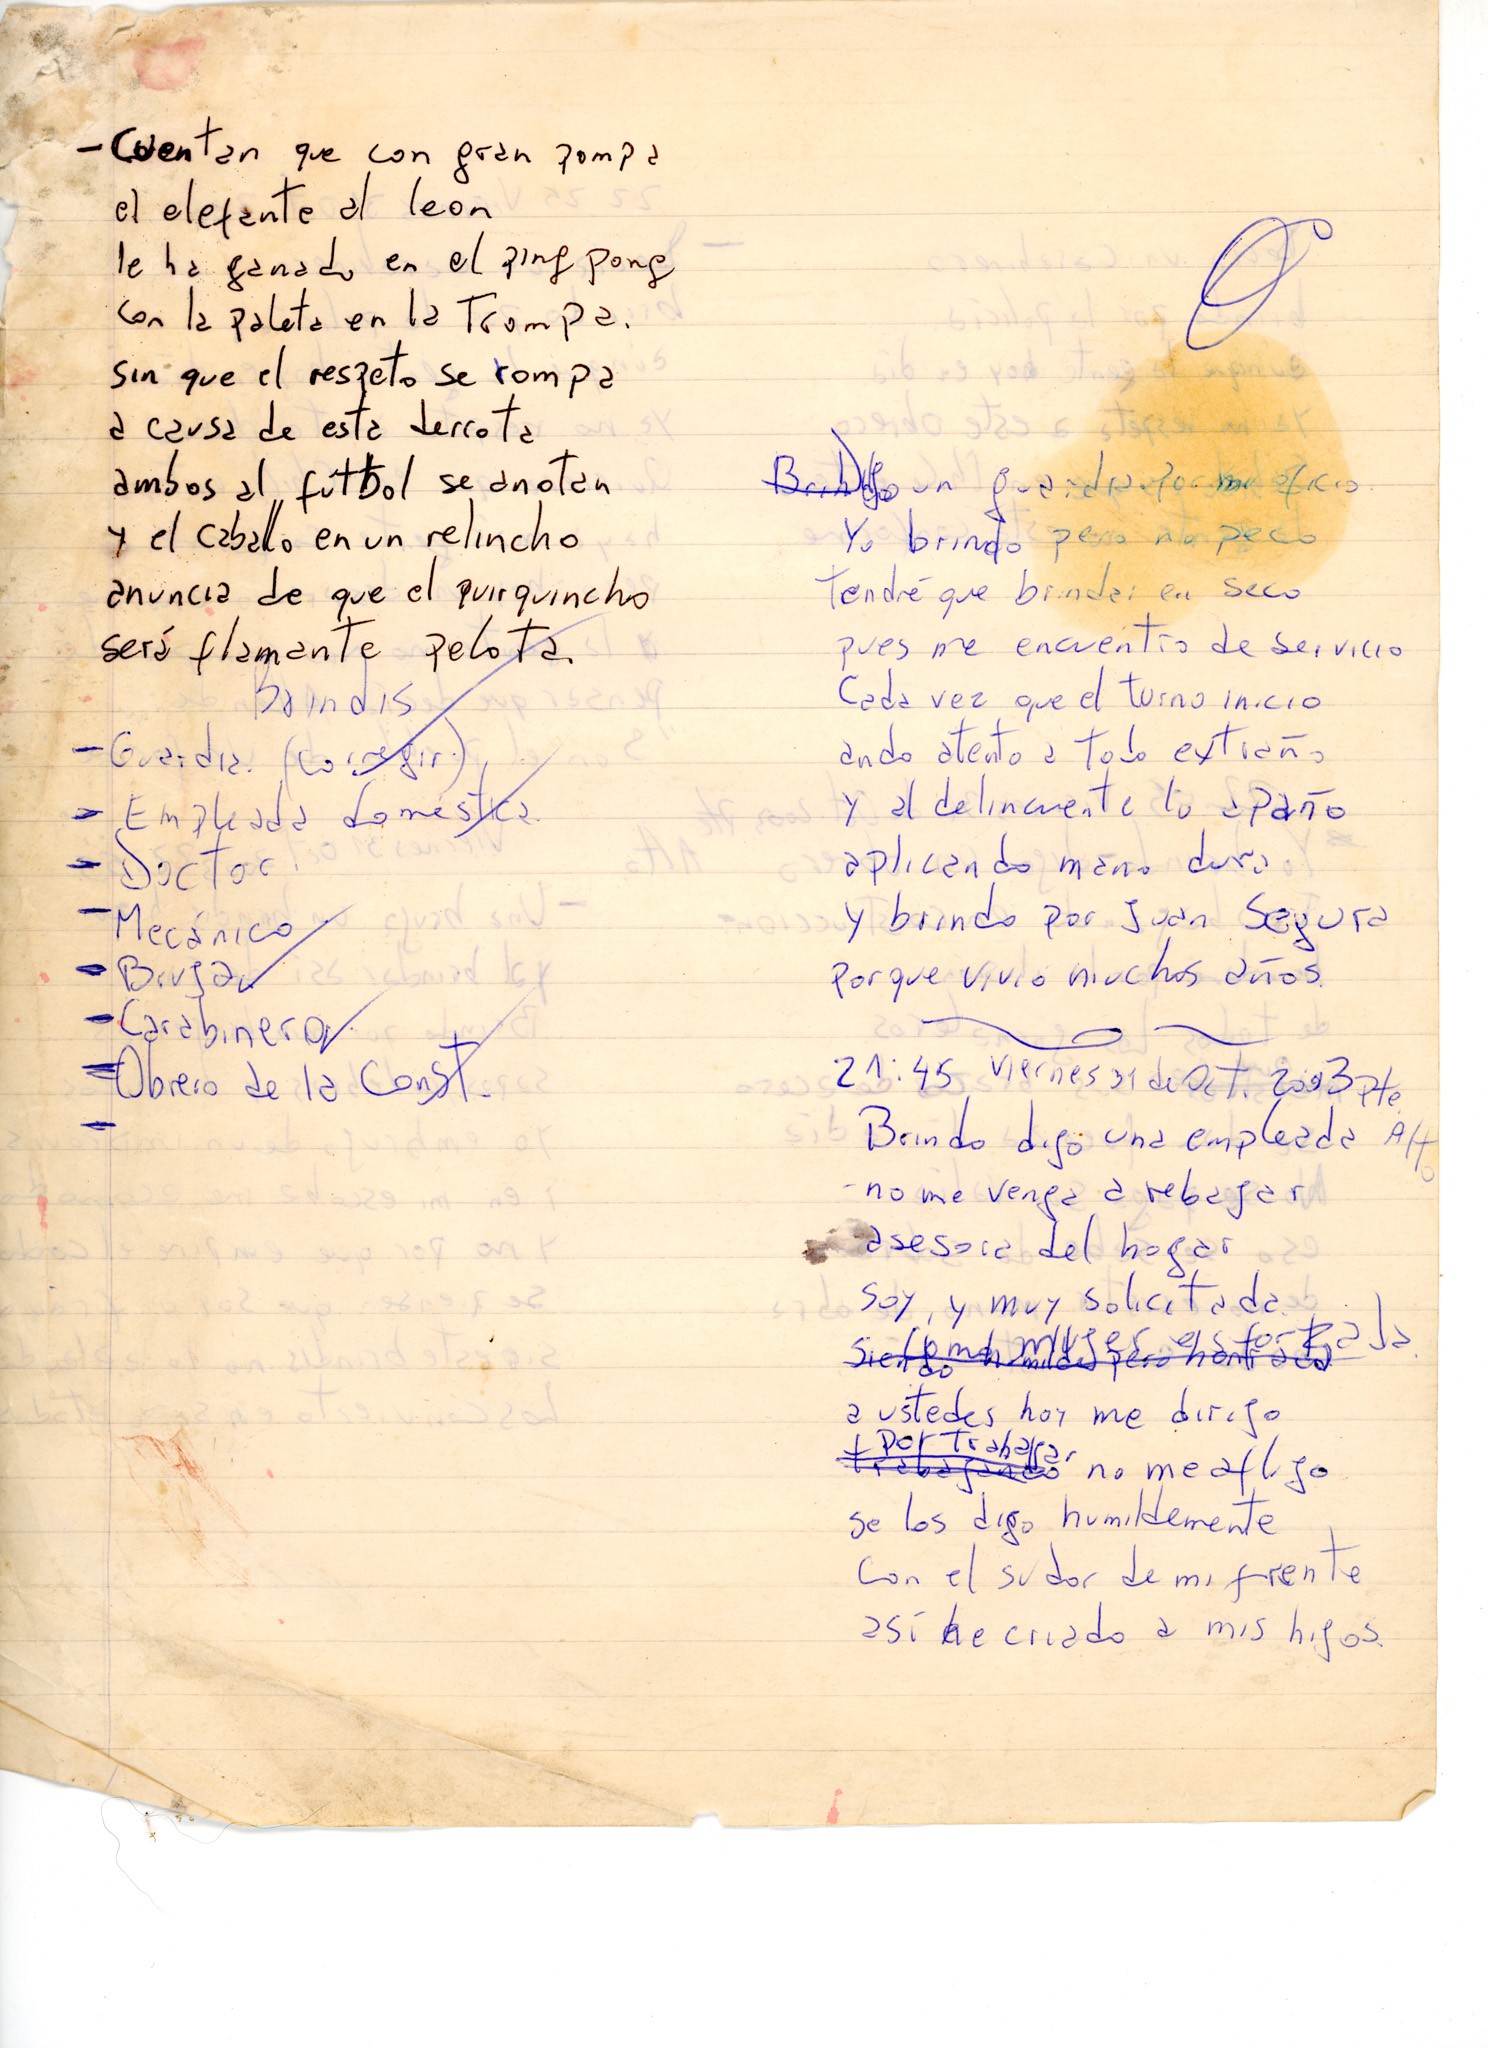 - Cuentan que con gran pompa
el elefante al leon
le ha ganado en el ping pong
con la paleta en la Trompa.
sin que el respeto se rompa
a causa de esta derrota
ambos al futbol se anotan
y el caballo en un relincho
anuncia de que el quirquincho
será flamante pelota.
brindis
- Guardia (corregir)
- Empleada doméstica.
- Doctor
- Mecánico
- Bruja
- Carabinero
- Obrero de la Const.
-
Digo un guardia por mi oficio
Yo brindo pero no peco
Tendré que brindar en seco
pues me encuentro de servicio
Cada vez que el turno inicio
ando atento a todo extraño
Y al delincuente lo apaño
aplicando mano dura
y brindo por Juan Segura
porque vivio muchos años.
21:45 Viernes 31 de Oct. 2003 Pte. Alto
Brindo digo una empleada
- no me venga a rebajar
asesora del hogar
soy, y muy solicitada.
Como mujer esforzada.
Siendo humilde pero honrada
a ustedes hoy me dirijo
+ por trabajar
trabajando no me aflijo
se los digo humildemente
con el sudor de mi frente
así he criado a mis hijos.